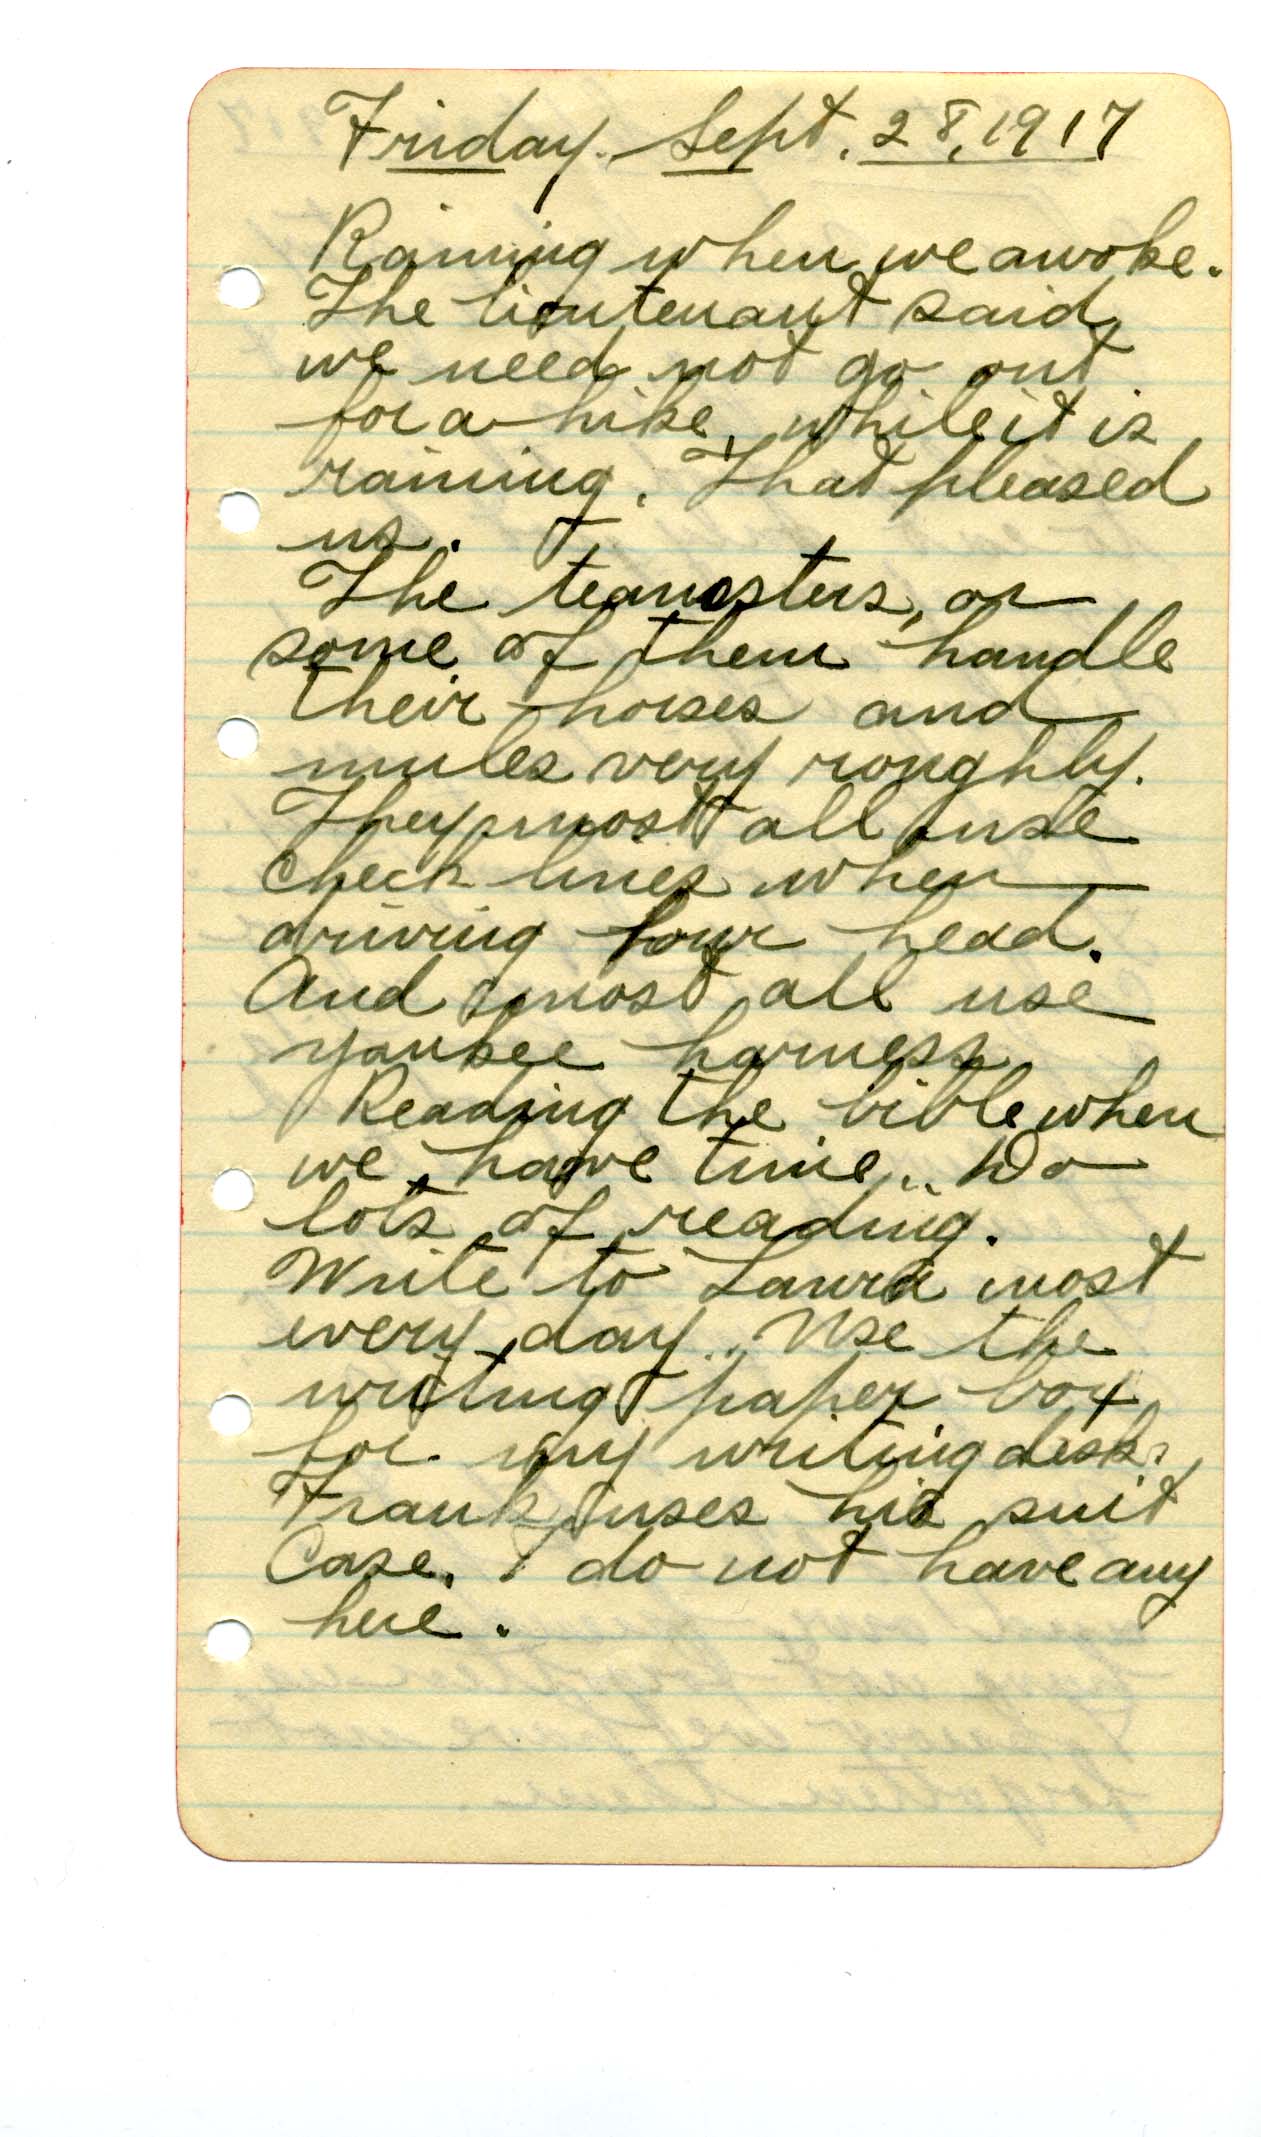 Friday. Sept. 28, 1917
Raining when we awoke.
The lieutenant said
we need not go out
for a hike while it is
raining. That pleased
us.
The teamsters, or
some of them handle
their horses and
mules very roughly.
They most all use
check lines when
driving four head.
And most all use
yankee harness
Reading the bible when
we have time.. Do
lots of reading.
Write to Laura most
every day.. Use the
writing paper box
for my writing desk.
Frank uses his suit
Case. I do not have any
here.